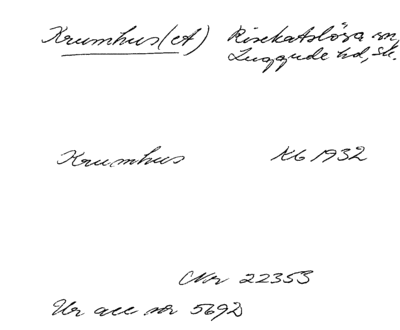 Krumhus(et) Risekatslösa sn,
Luggude hd, Sk.
Krumhus KG 1932
Nr 22353
Ur acc nr 5692